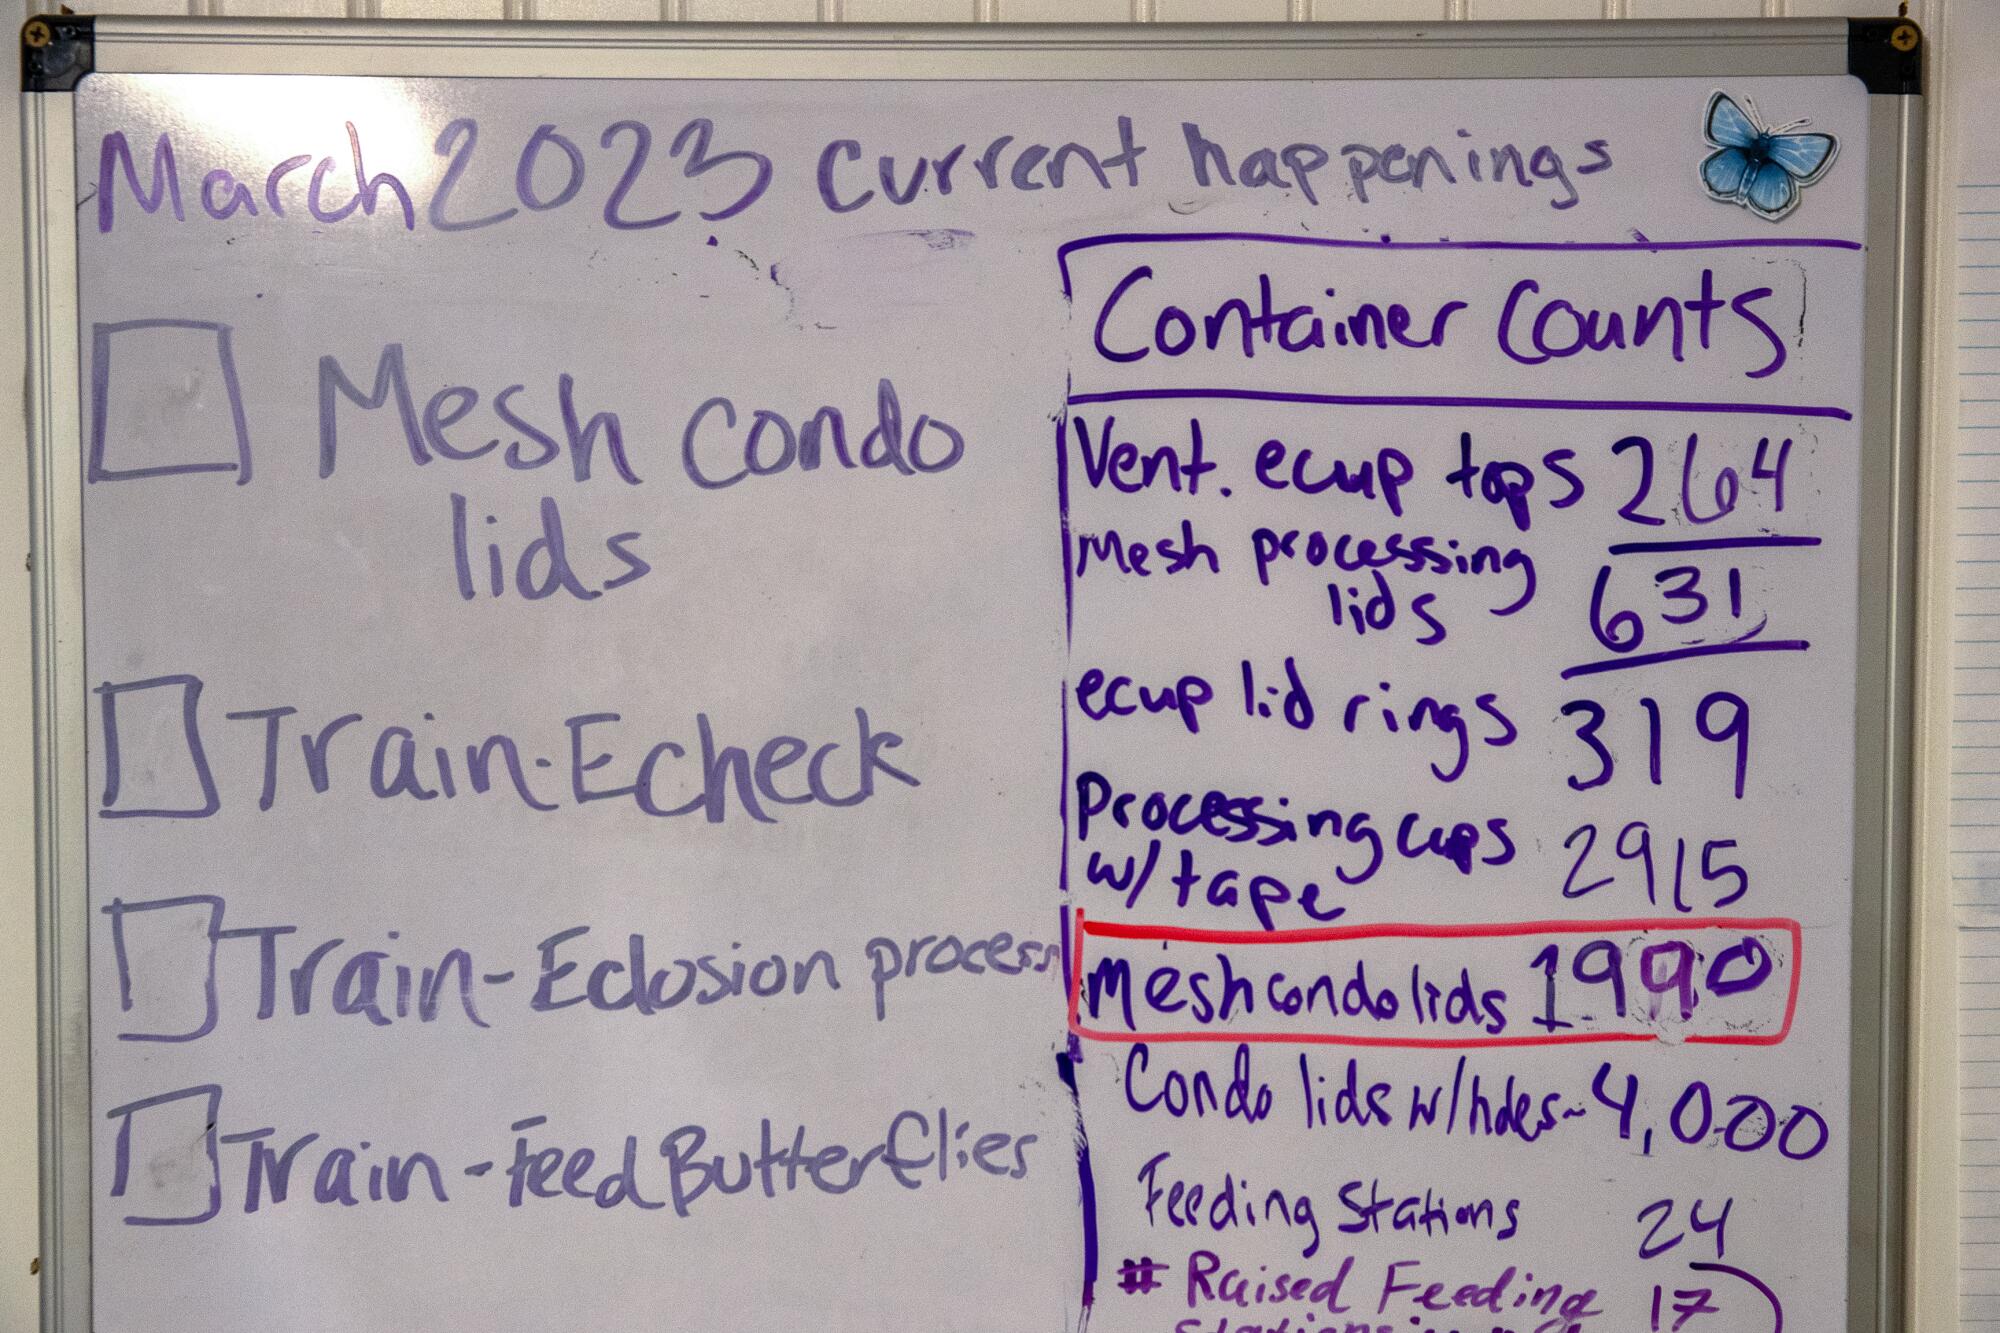 March 2023 Current happenings
Mesh condo
lids
Train-Echeck
Train-Eclosion process
Train-Feed Butterflies
Container Counts
Vent. ecup tops 264
Mesh processing
lids 631
ecup lid rings 319
Processing cups
w/tape 2915
Mesh condo lids 1990
Condo lids w/holes~4,000
Feeding Stations 24
# Raised Feeding 17